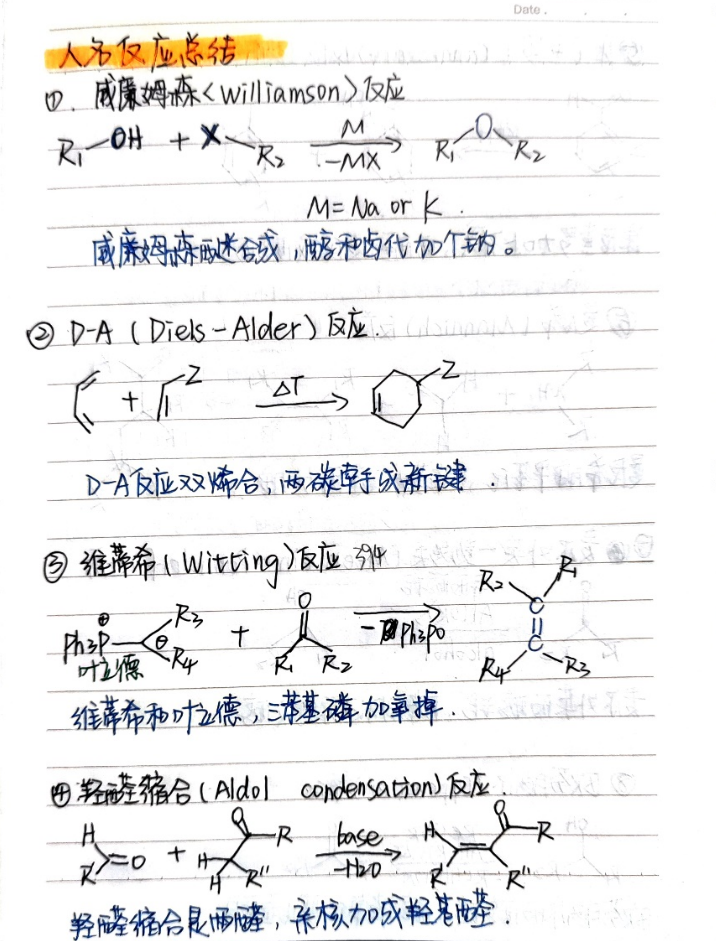 Date.
人名反应总结
①. 威廉姆森<Williamson>反应
R₁—OH + X—R₂ M -MX → R₁ O R₂
M=Na or K.
威廉姆森醚合成,醇和卤代加个钠。
② D-A (Diels-Alder) 反应.
+ Z ΔT → Z
D-A反应双烯合,两碳牵手成新键.
③ 维蒂希(Witting)反应 394
Ph3P ⊕ ⊖ R3 R4 + O R₁ R₂ - Ph3PO → R₂ R₁ C=C R4 R3
叶立德
维蒂希和叶立德,三苯基磷加氧掉.
④ 羟醛缩合(Aldol condensation)反应.
H R' =O + O R H H R'' base -H2O → H R' O R R''
羟醛缩合是两醛,亲核加成羟基醛.